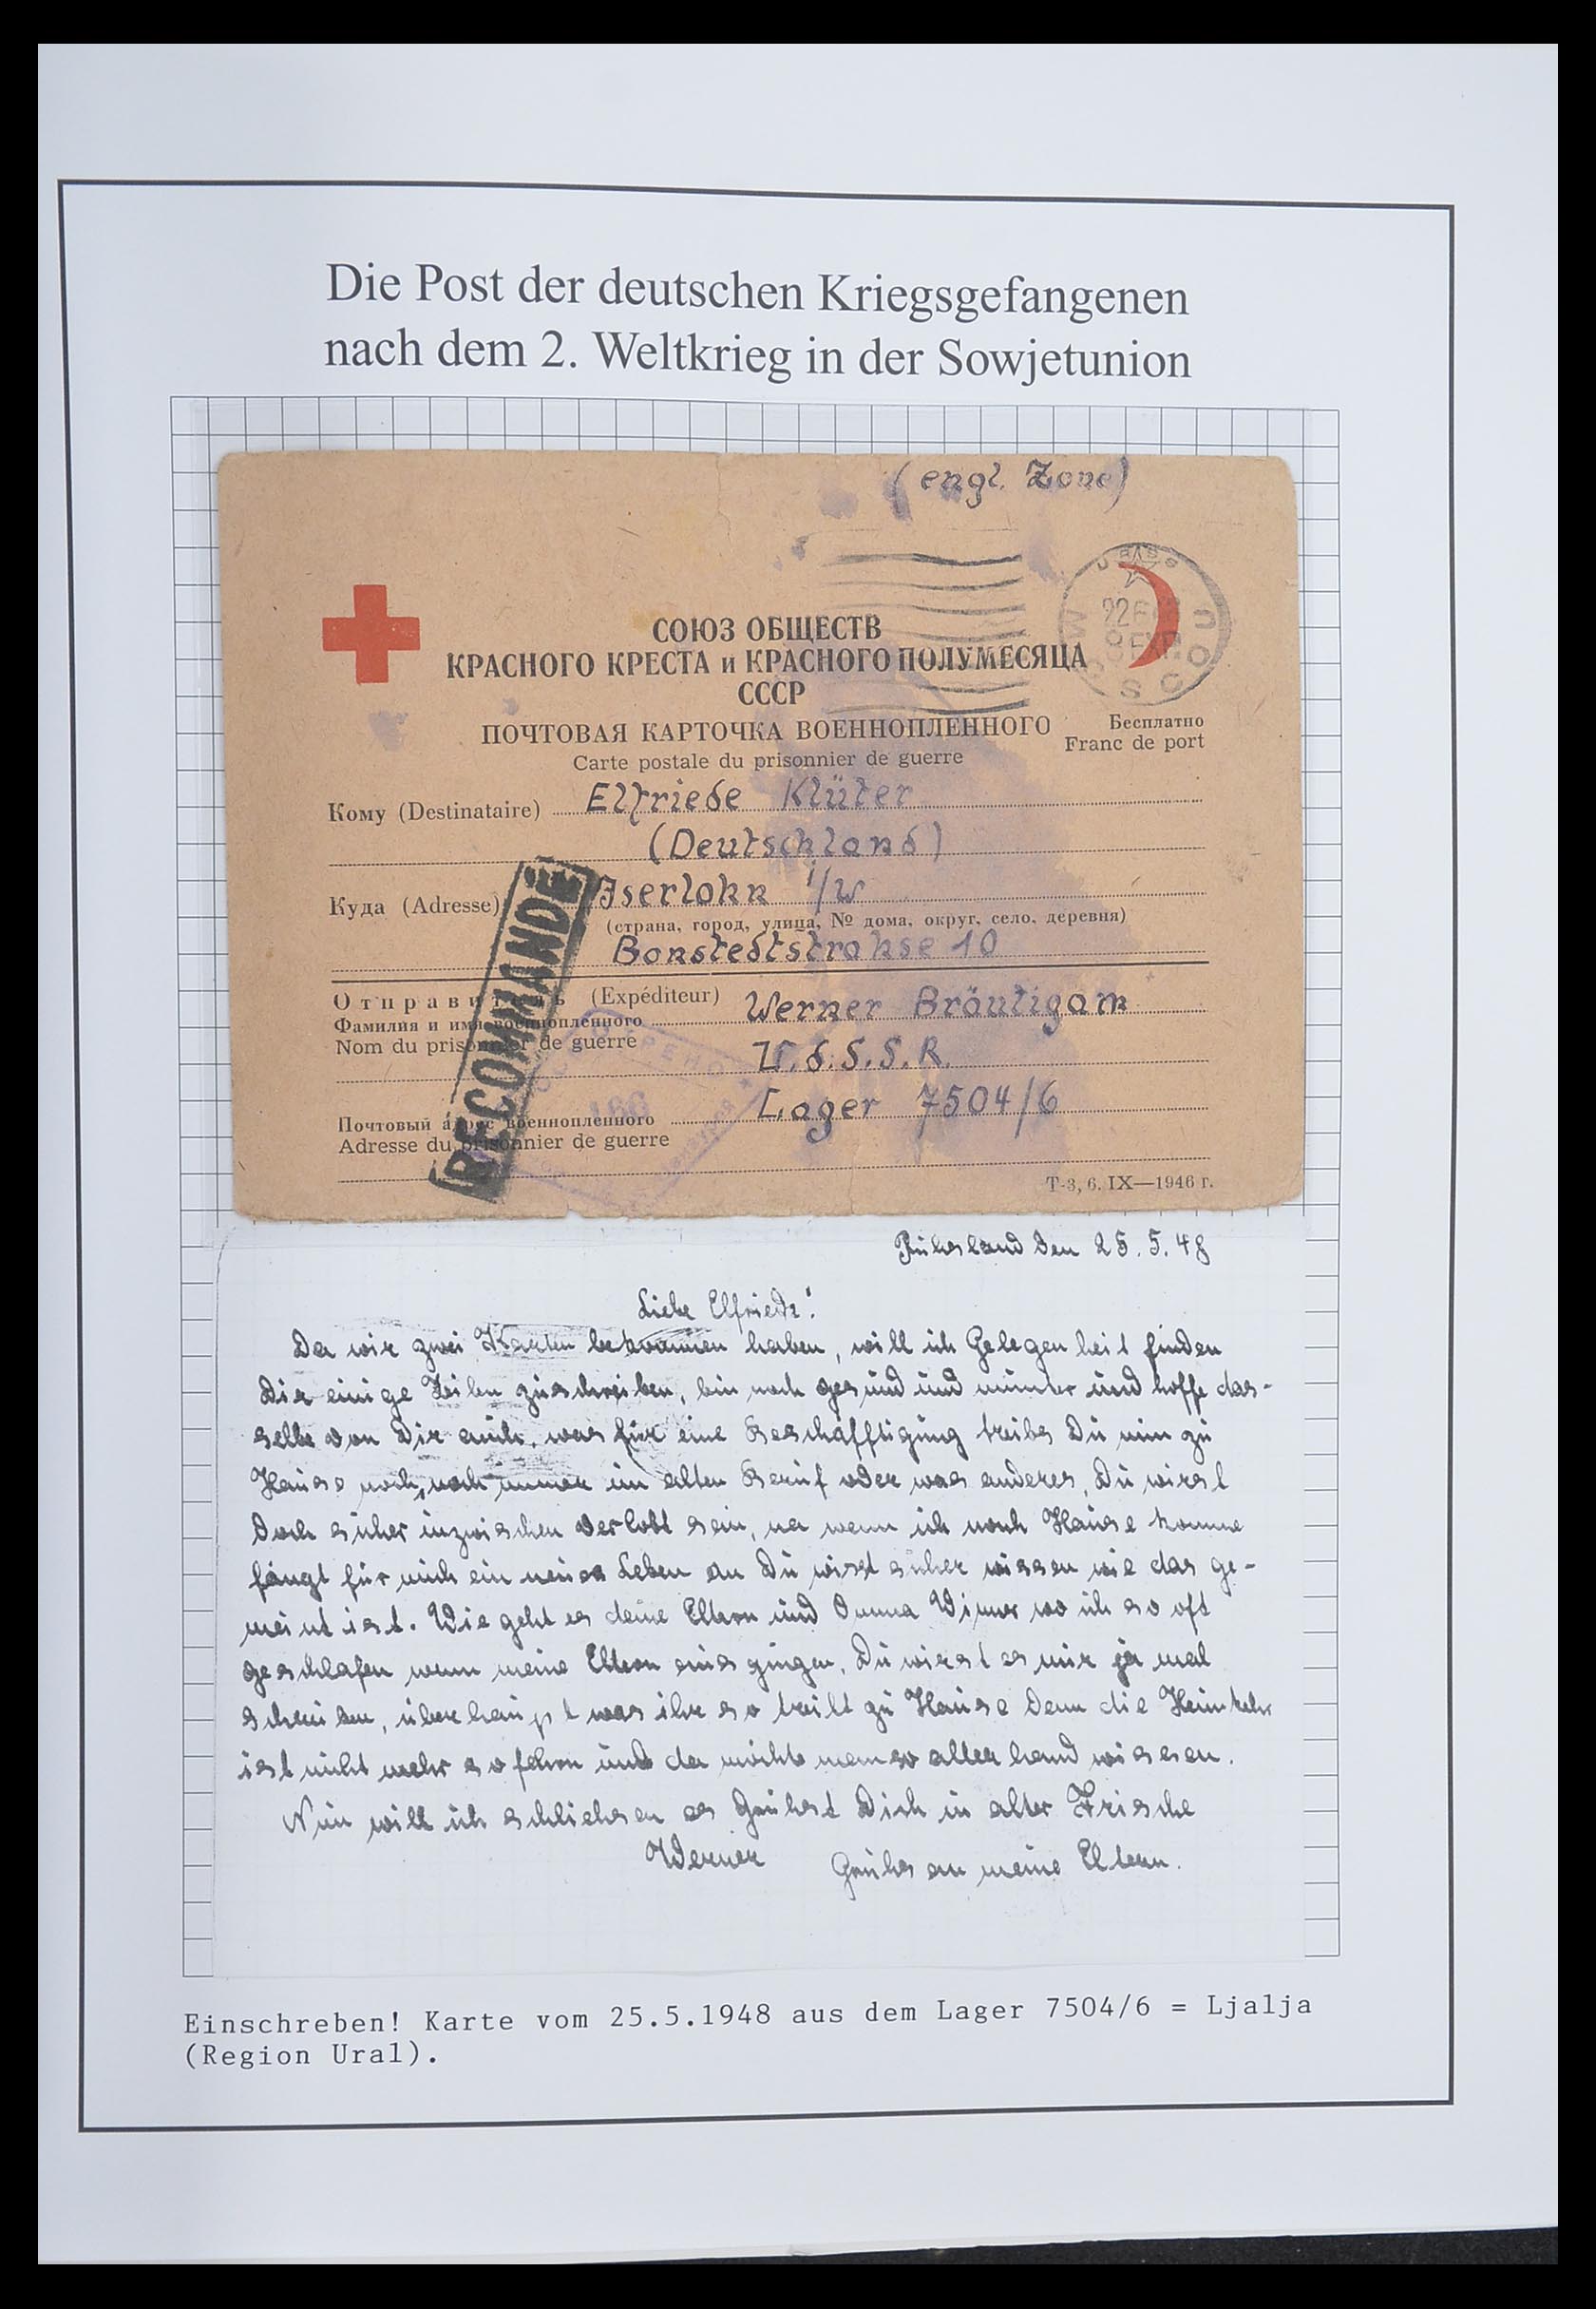 Die Post der deutschen Kriegsgefangenen
nach dem 2. Weltkrieg in der Sowjetunion
(engl. Zone)
СОЮЗ ОБЩЕСТВ
КРАСНОГО КРЕСТА и КРАСНОГО ПОЛУМЕСЯЦА
СССР
ПОЧТОВАЯ КАРТОЧКА ВОЕННОПЛЕННОГО
Бесплатно
Carte postale du prisonnier de guerre
Franc de port
Кому (Destinataire) Elfriede Klüter
(Deutschland)
Куда (Adresse) Iserlohn i/W
(страна, город, улица, № дома, округ, село, деревня)
Bonstedtstrahse 10
RECOMMANDÉ
Отправитель (Expéditeur) Werner Bräutigam
Фамилия и имя военнопленного
Nom du prisonnier de guerre
U.d.S.S.R.
Lager 7504/6
Почтовый адрес военнопленного
Adresse du prisonnier de guerre
Т-3, 6. IX—1946 г.
Ruhsland den 25.5.48
Liebe Elfriede!
Da wir zwei Karten bekommen haben, will ich Gelegenheit finden
Dir einige Zeilen zuschreiben, bin noch gesund und munter und hoffe das-
selbe von Dir auch. was für eine Beschäfftigung treibs Du nun zu
Hause noch, noch immer im alten Beruf oder was anderes, Du wirst
doch sicher inzwischen verlobt sein, na wenn ich nach Hause komme
fängt für mich ein neues Leben an Du wirst sicher wissen wie das ge-
meint ist. Wie geht es deine Eltern und Omma wo ich so oft
geschlafen wenn meine Eltern aus gingen, Du wirst es mir ja mal
schreiben, überhaupt was ihr so treibt zu Hause denn die Heimkehr
ist nicht mehr so fehrn und da möchte man so aller hand wissen.
Nun will ich schliehsen es Grühst Dich in alter Frische
Werner Grühs an meine Eltern.
Einschreben! Karte vom 25.5.1948 aus dem Lager 7504/6 = Ljalja
(Region Ural).